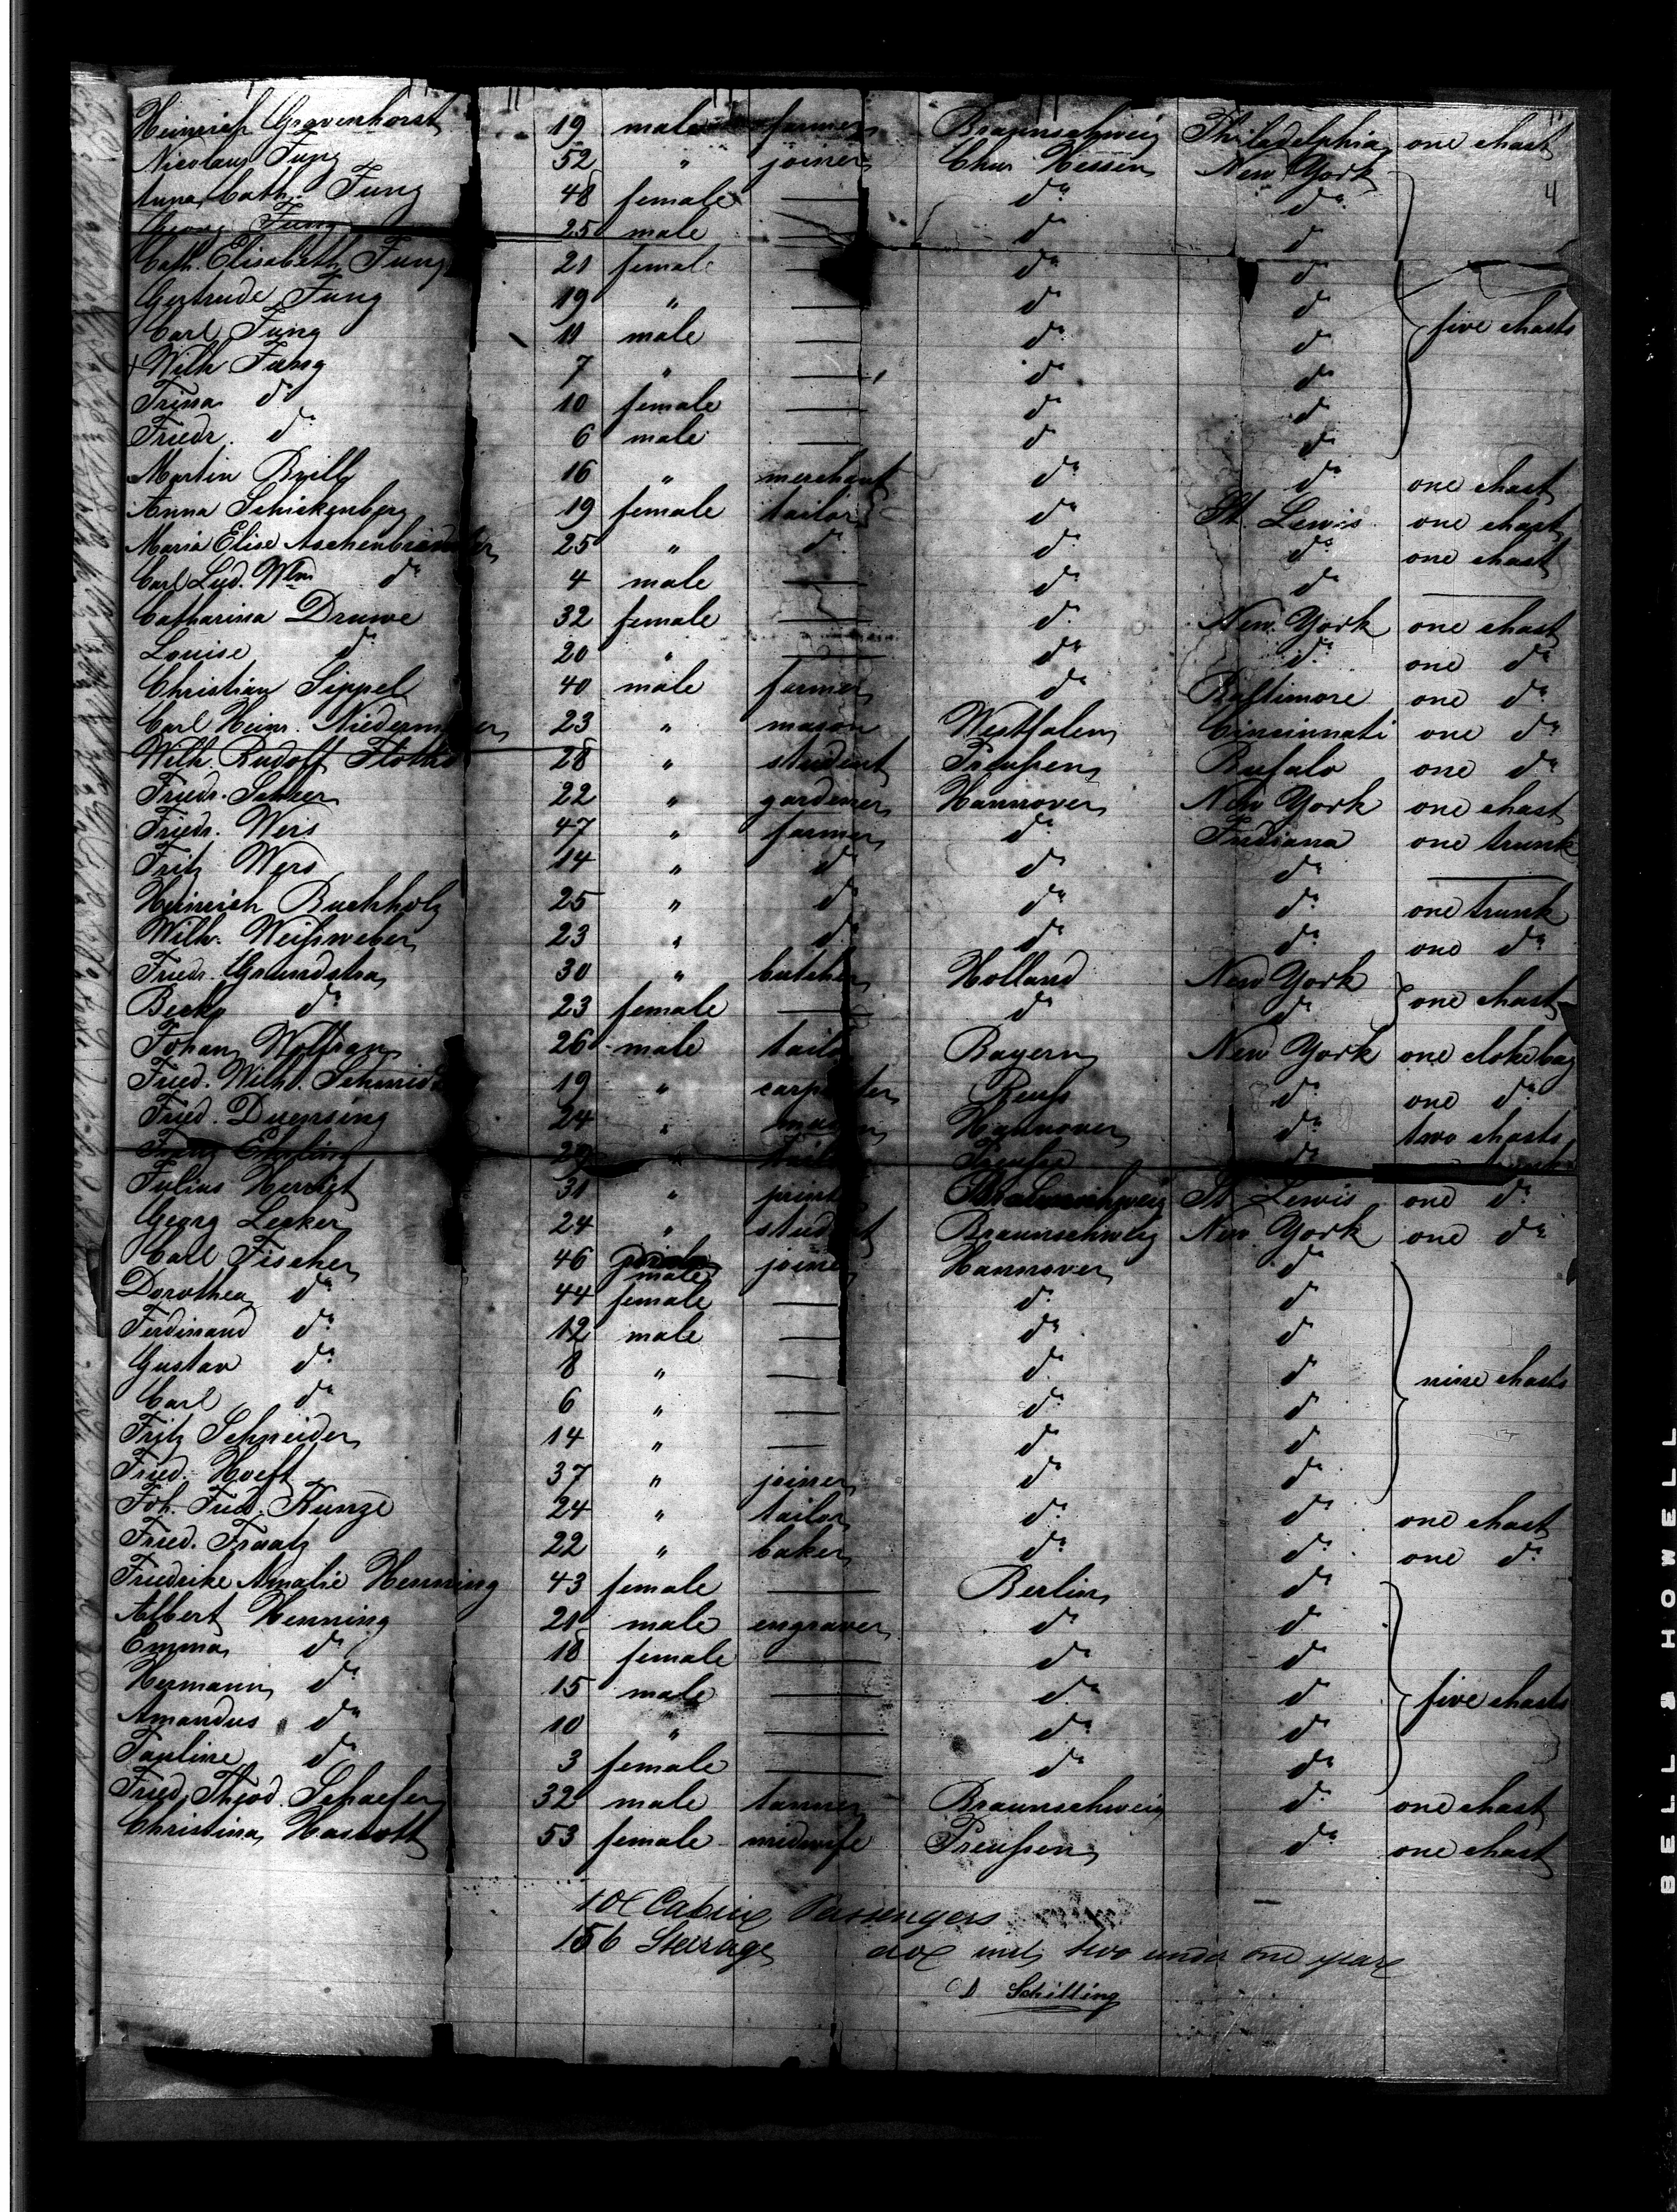 Heinrich Gravenhorst 19 male farmer Braunschweig Philadelphia one chast
Nicolaus Jung 52 " joiner Chur Hessen New York
4
Anna Cath. Jung 48 female — do do
Georg Jung 25 male — do do
Cath. Elisabeth Jung 21 female — do do
Gertrude Jung 19 " — do do
Carl Jung 11 male — do do five chasts
+ Wilh Jung 7 " — do do
Trina do 10 female — do do
Friedr. do 6 male — do do
Martin Brill 16 " merchant do do one chast
Anna Schickenberg 19 female tailor do St. Lewis one chast
Maria Elise Aschenbrander 25 " do do do one chast
Carl Lud. Wlm do 4 male — do do —
Catharina Druwe 32 female — do New York one chast
Louise do 20 " — do do one do
Christian Sippel 40 male farmer do Baltimore one do
Carl Heinr. 23 " mason Westfalen Cincinnati one do
Wilh. Rudolf 28 " student Preußen Bufalo one do
Friedr. 22 " gardener Hannover New York one chast
Friedr. Wers 47 " farmer do Indiana one trunk
Fritz Wers 14 " do do do —
Heinrich Buchholz 25 " do do do one trunk
Wilh. Weißweber 23 " do do do one do
Friedr. Grundstra 30 " butcher Holland New York
one chast
Becky do 23 female — do do
Johan Wolfram 26 male tailor Bayern New York one cloke bag
Fried. Wilh. Schmidt 19 " carpenter Reuß do one do
Fried. Duensing 24 " mason Hannover do two chasts
Franz 29 " tailor do
Julius 31 " St Lewis one do
Georg Lecker 24 " student Braunschweig New York one do
Carl Fischer 46 male joiner Hannover do
Dorothea do 44 female — do do
Ferdinand do 12 male — do do
Gustav do 8 " — do do nine chasts
Carl do 6 " — do do
Fritz Schneider 14 " — do do
Fried. Hoeft 37 " joiner do do
Joh. Fried. Kunze 24 " tailor do do one chast
Fried. Fraatz 22 " baker do do one do
Friedrike Amalie Henning 43 female — Berlin do
Albert Henning 21 male engraver do do
Emma do 18 female — do do
Hermann do 15 male — do do five chasts
Amandus do 10 " — do do
Pauline do 3 female — do do
Fried. Theod. Schaefer 32 male tanner Braunschweig do one chast
Christina Hasrott 53 female midwife Preußen do one chast
10 Cabine Passengers
156 Steerage two under one year
D Schilling
BELL & HOWELL